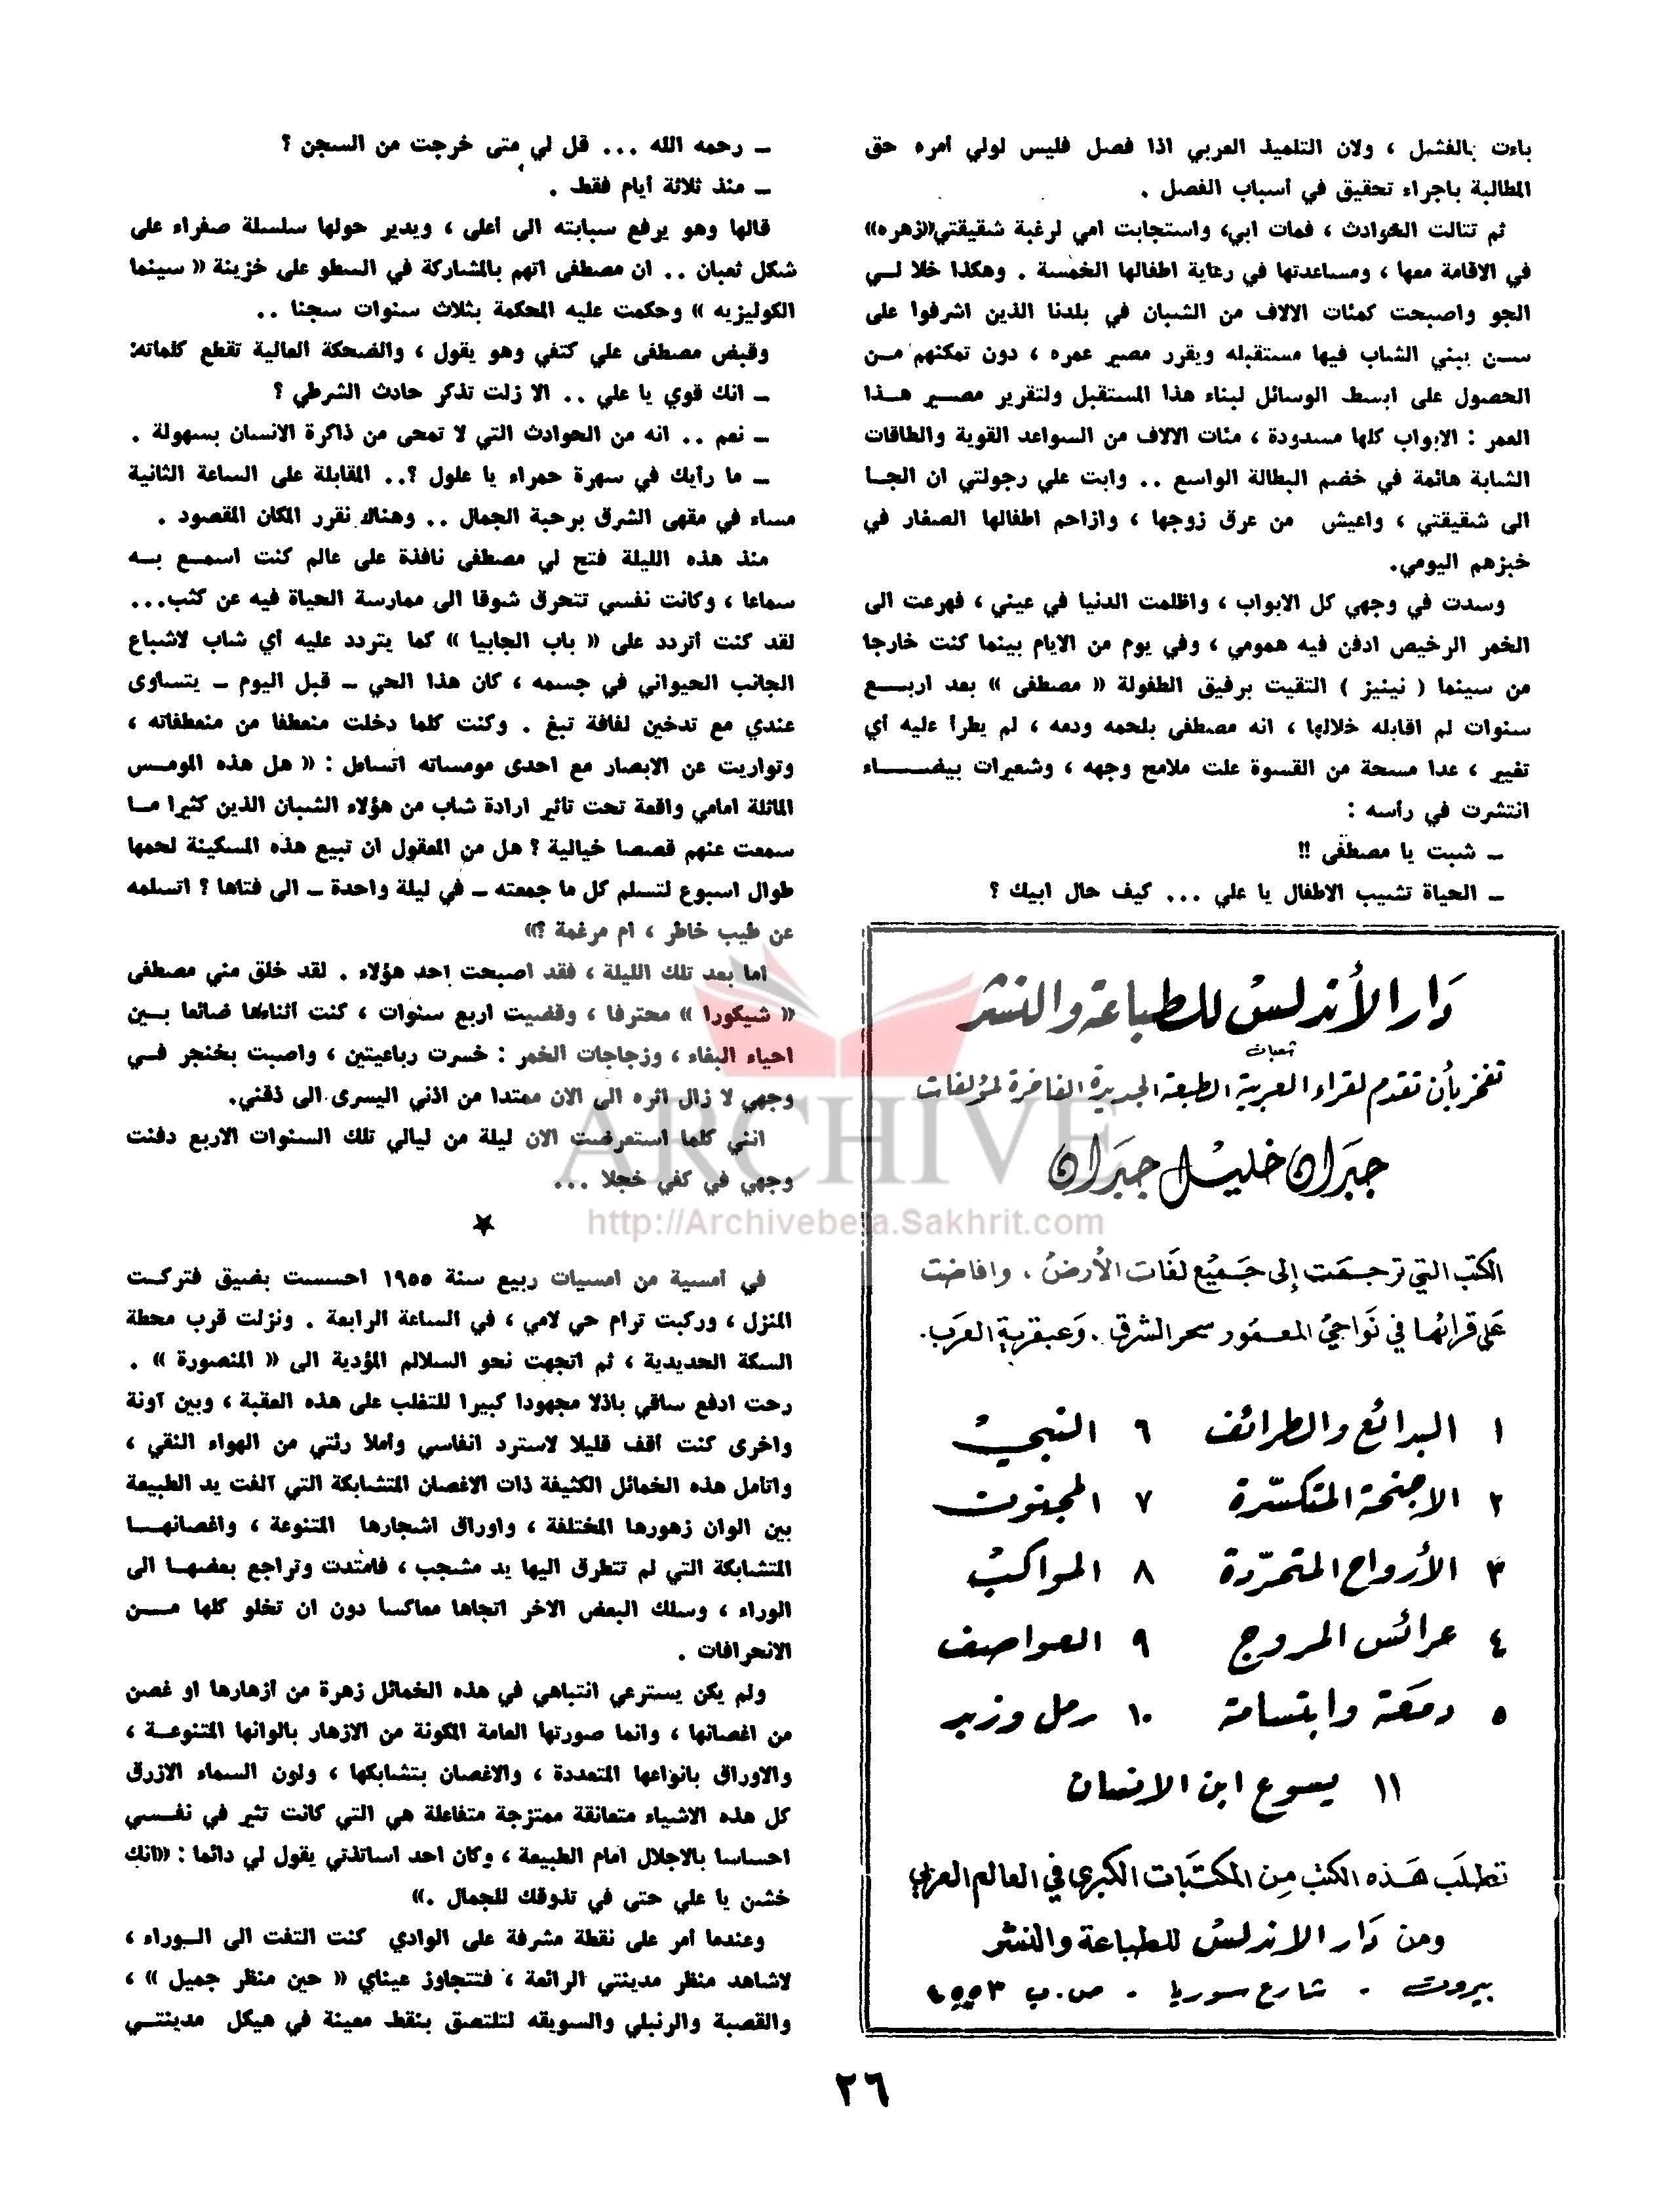 باءت بالفشل ، ولان التلميذ العربي اذا فصل فليس لولي أمره حق
المطالبة باجراء تحقيق في أسباب الفصل .
ثم تتالت الحوادث ، فمات ابي، واستجابت امي لرغبة شقيقتي«زهره»
في الاقامة معها ، ومساعدتها في رعاية اطفالها الخمسة . وهكذا خلا لـــي
الجو واصبحت كمئات الالاف من الشبان في بلدنا الذين اشرفوا على
ســـن يبني الشاب فيها مستقبله ويقرر مصير عمره ، دون تمكنهم مـــن
الحصول على ابسط الوسائل لبناء هذا المستقبل ولتقرير مصـــير هـــذا
العمر : الابواب كلها مسدودة ، مئات الالاف من السواعد القوية والطاقات
الشابة هائمة في خضم البطالة الواسع .. وابت علي رجولتي ان الجـــأ
الى شقيقتي ، واعيش من عرق زوجها ، وازاحم اطفالها الصغار في
خبزهم اليومي.
وسدت في وجهي كل الابواب ، واظلمت الدنيا في عيني ، فهرعت الى
الخمر الرخيص ادفن فيه همومي ، وفي يوم من الايام بينما كنت خارجا
من سينما ( نينيز ) التقيت برفيق الطفولة « مصطفى » بعد اربـــع
سنوات لم اقابله خلالها ، انه مصطفى بلحمه ودمه ، لم يطرأ عليه أي
تغيير ، عدا مسحة من القسوة علت ملامح وجهه ، وشعيرات بيضـــاء
انتشرت في رأسه :
ـ شبت يا مصطفى !!
ـ الحياة تشيب الاطفال يا علي ... كيف حال ابيك ؟
دار الأندلس للطباعة والنشر
تفخر بأن تقدم لقراء العربية الطبعة الجديدة الفاخرة لمؤلفات
جبران خليل جبران
الكتب التي ترجمت إلى جميع لغات الأرض ، وافاضت
على قرائها في نواحي المعمور سحر الشرق . وعبقرية العرب .
١ البدائع والطرائف ٦ النبي
٢ الاجنحة المتكسرة ٧ المجنون
٣ الأرواح المتمردة ٨ المواكب
٤ عرائس المروج ٩ العواصف
٥ دمعة وابتسامة ١٠ رمل وزبد
١١ يسوع ابن الانسان
تطلب هذه الكتب من المكتبات الكبرى في العالم العربي
ومن دار الاندلس للطباعة والنشر
بيروت . شارع سوريا . ص.ب ٤٥٥٣
ـ رحمه الله ... قل لي متى خرجت من السجن ؟
ـ منذ ثلاثة أيام فقط .
قالها وهو يرفع سبابته الى أعلى ، ويدير حولها سلسلة صفراء على
شكل ثعبان .. ان مصطفى اتهم بالمشاركة في السطو على خزينة « سينما
الكوليزيه » وحكمت عليه المحكمة بثلاث سنوات سجنا ..
وقبض مصطفى علي كتفي وهو يقول ، والضحكة العالية تقطع كلماته:
ـ انك قوي يا علي .. الا زلت تذكر حادث الشرطي ؟
ـ نعم .. انه من الحوادث التي لا تمحى من ذاكرة الانسان بسهولة .
ـ ما رأيك في سهرة حمراء يا علول ؟.. المقابلة على الساعة الثانية
مساء في مقهى الشرق برحبة الجمال .. وهناك نقرر المكان المقصود .
منذ هذه الليلة فتح لي مصطفى نافذة على عالم كنت اسمـــع بـــه
سماعا ، وكانت نفسي تتحرق شوقا الى ممارسة الحياة فيه عن كثب...
لقد كنت أتردد على « باب الجابيا » كما يتردد عليه أي شاب لاشباع
الجانب الحيواني في جسمه ، كان هذا الحي ـ قبل اليوم ـ يتساوى
عندي مع تدخين لفافة تبغ . وكنت كلما دخلت منعطفا من منعطفاته ،
وتواريت عن الابصار مع احدى مومساته اتساءل : « هل هذه المومـــس
الماثلة امامي واقعة تحت تأثير ارادة شاب من هؤلاء الشبان الذين كثيرا مـــا
سمعت عنهم قصصا خيالية ؟ هل من المعقول ان تبيع هذه المسكينة لحمها
طوال اسبوع لتسلم كل ما جمعته ـ في ليلة واحدة ـ الى فتاها ؟ اتسلمه
عن طيب خاطر ، ام مرغمة ؟»
اما بعد تلك الليلة ، فقد اصبحت احد هؤلاء . لقد خلق مني مصطفى
« شيكورا » محترفا ، وقضيت اربع سنوات ، كنت اثناءها ضائعا بـــين
احياء البغاء ، وزجاجات الخمر : خسرت رباعيتين ، واصبت بخنجر فـــي
وجهي لا زال اثره الى الان ممتدا من اذني اليسرى الى ذقني.
انني كلما استعرضت الان ليلة من ليالي تلك السنوات الاربع دفنت
وجهي في كفي خجلا ...
★
في أمسية من امسيات ربيع سنة ١٩٥٥ احسست بضيق فتركـــت
المنزل ، وركبت ترام حي لامي ، في الساعة الرابعة . ونزلت قرب محطة
السكة الحديدية ، ثم اتجهت نحو السلالم المؤدية الى « المنصورة » .
رحت ادفع ساقي باذلا مجهودا كبيرا للتغلب على هذه العقبة ، وبين آونة
واخرى كنت أقف قليلا لاسترد انفاسي وأملأ رئتي من الهواء النقي ،
واتأمل هذه الخمائل الكثيفة ذات الاغصان المتشابكة التي آلفت يد الطبيعة
بين الوان زهورها المختلفة ، واوراق اشجارها المتنوعة ، واغصانهـــا
المتشابكة التي لم تتطرق اليها يد مشجب ، فامتدت وتراجع بعضهـــا الى
الوراء ، وسلك البعض الاخر اتجاها معاكسا دون ان تخلو كلها مـــن
الانحرافات .
ولم يكن يسترعي انتباهي في هذه الخمائل زهرة من أزهارها او غصن
من اغصانها ، وانما صورتها العامة المكونة من الازهار بالوانها المتنوعـــة ،
والاوراق بانواعها المتعددة ، والاغصان بتشابكها ، ولون السماء الازرق
كل هذه الاشياء متعانقة ممتزجة متفاعلة هي التي كانت تثير في نفـــسي
احساسا بالاجلال امام الطبيعة ، وكان احد اساتذتي يقول لي دائما : «انك
خشن يا علي حتى في تذوقك للجمال .»
وعندما أمر على نقطة مشرفة على الوادي كنت التفت الى الـــوراء ،
لاشاهد منظر مدينتي الرائعة ، فتتجاوز عيناي « حين منظر جميل » ،
والقصبة والرنبلي والسويقه لتلتصق بنقط معينة في هيكل مدينتـــي
ARCHIVE
http://Archivebeta.Sakhrit.com
٢٦